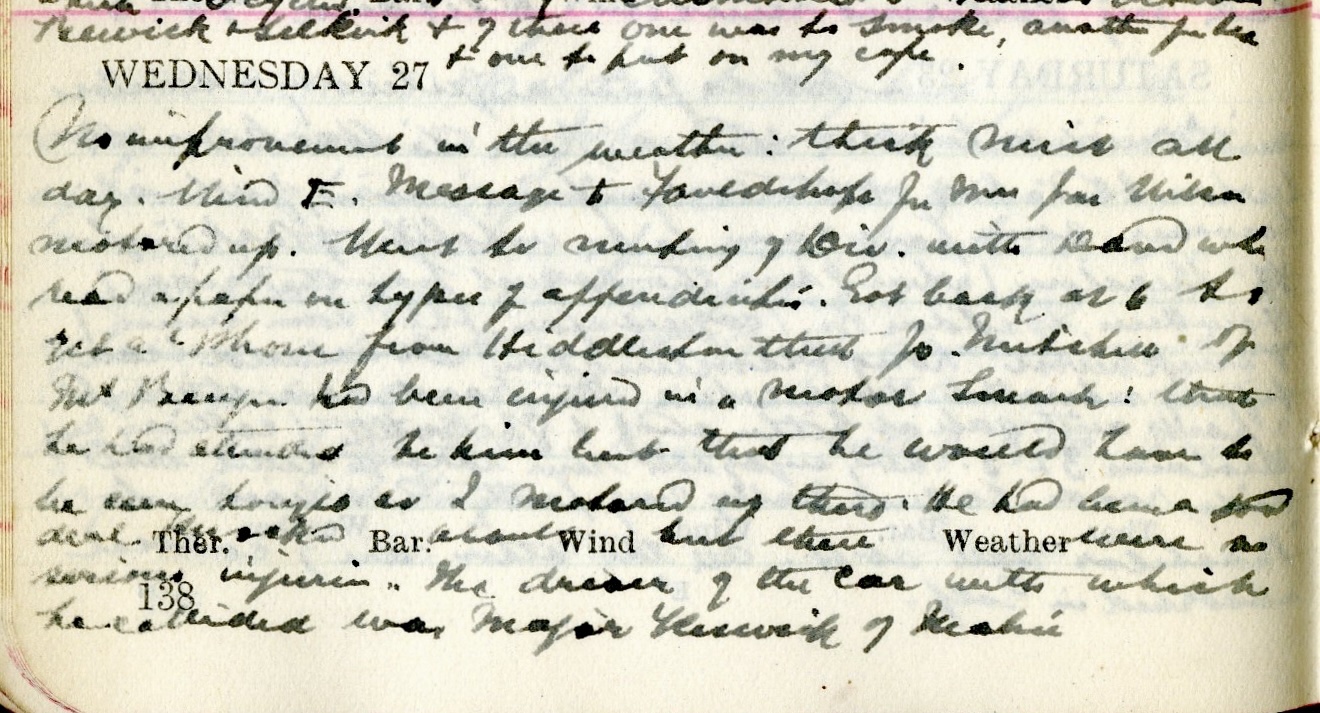 & Selkirk & of these one was to smoke, another
& one to put on my cape.
WEDNESDAY 27
No improvement in the weather: thick mist all
day. Wind E. Message to for Mrs Jas Wilson
motored up. Went to meeting of Div. with David who
read a paper on types of appendicitis. Got back at 6 to
get a 'Phone from Hiddleston that Jo. Mitchell of
had been injured in a motor smash: that
he had attended to him but that he would have to
be seen tonight so I motored up there. He had been a good
deal knocked about but there were no
Ther. Bar. Wind Weather
serious injuries. The driver of the car with which
138
he collided was Major Keswick of